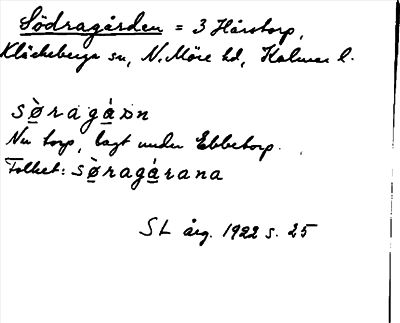 Södragården = 3 Hårstorp,
Kläckeberga sn, N. Möre hd, Kalmar l.
sø̀ragáɒn
Nu torp, lagt under Ebbetorp.
Folket: sø̀ragárana
SL årg. 1922 s. 25